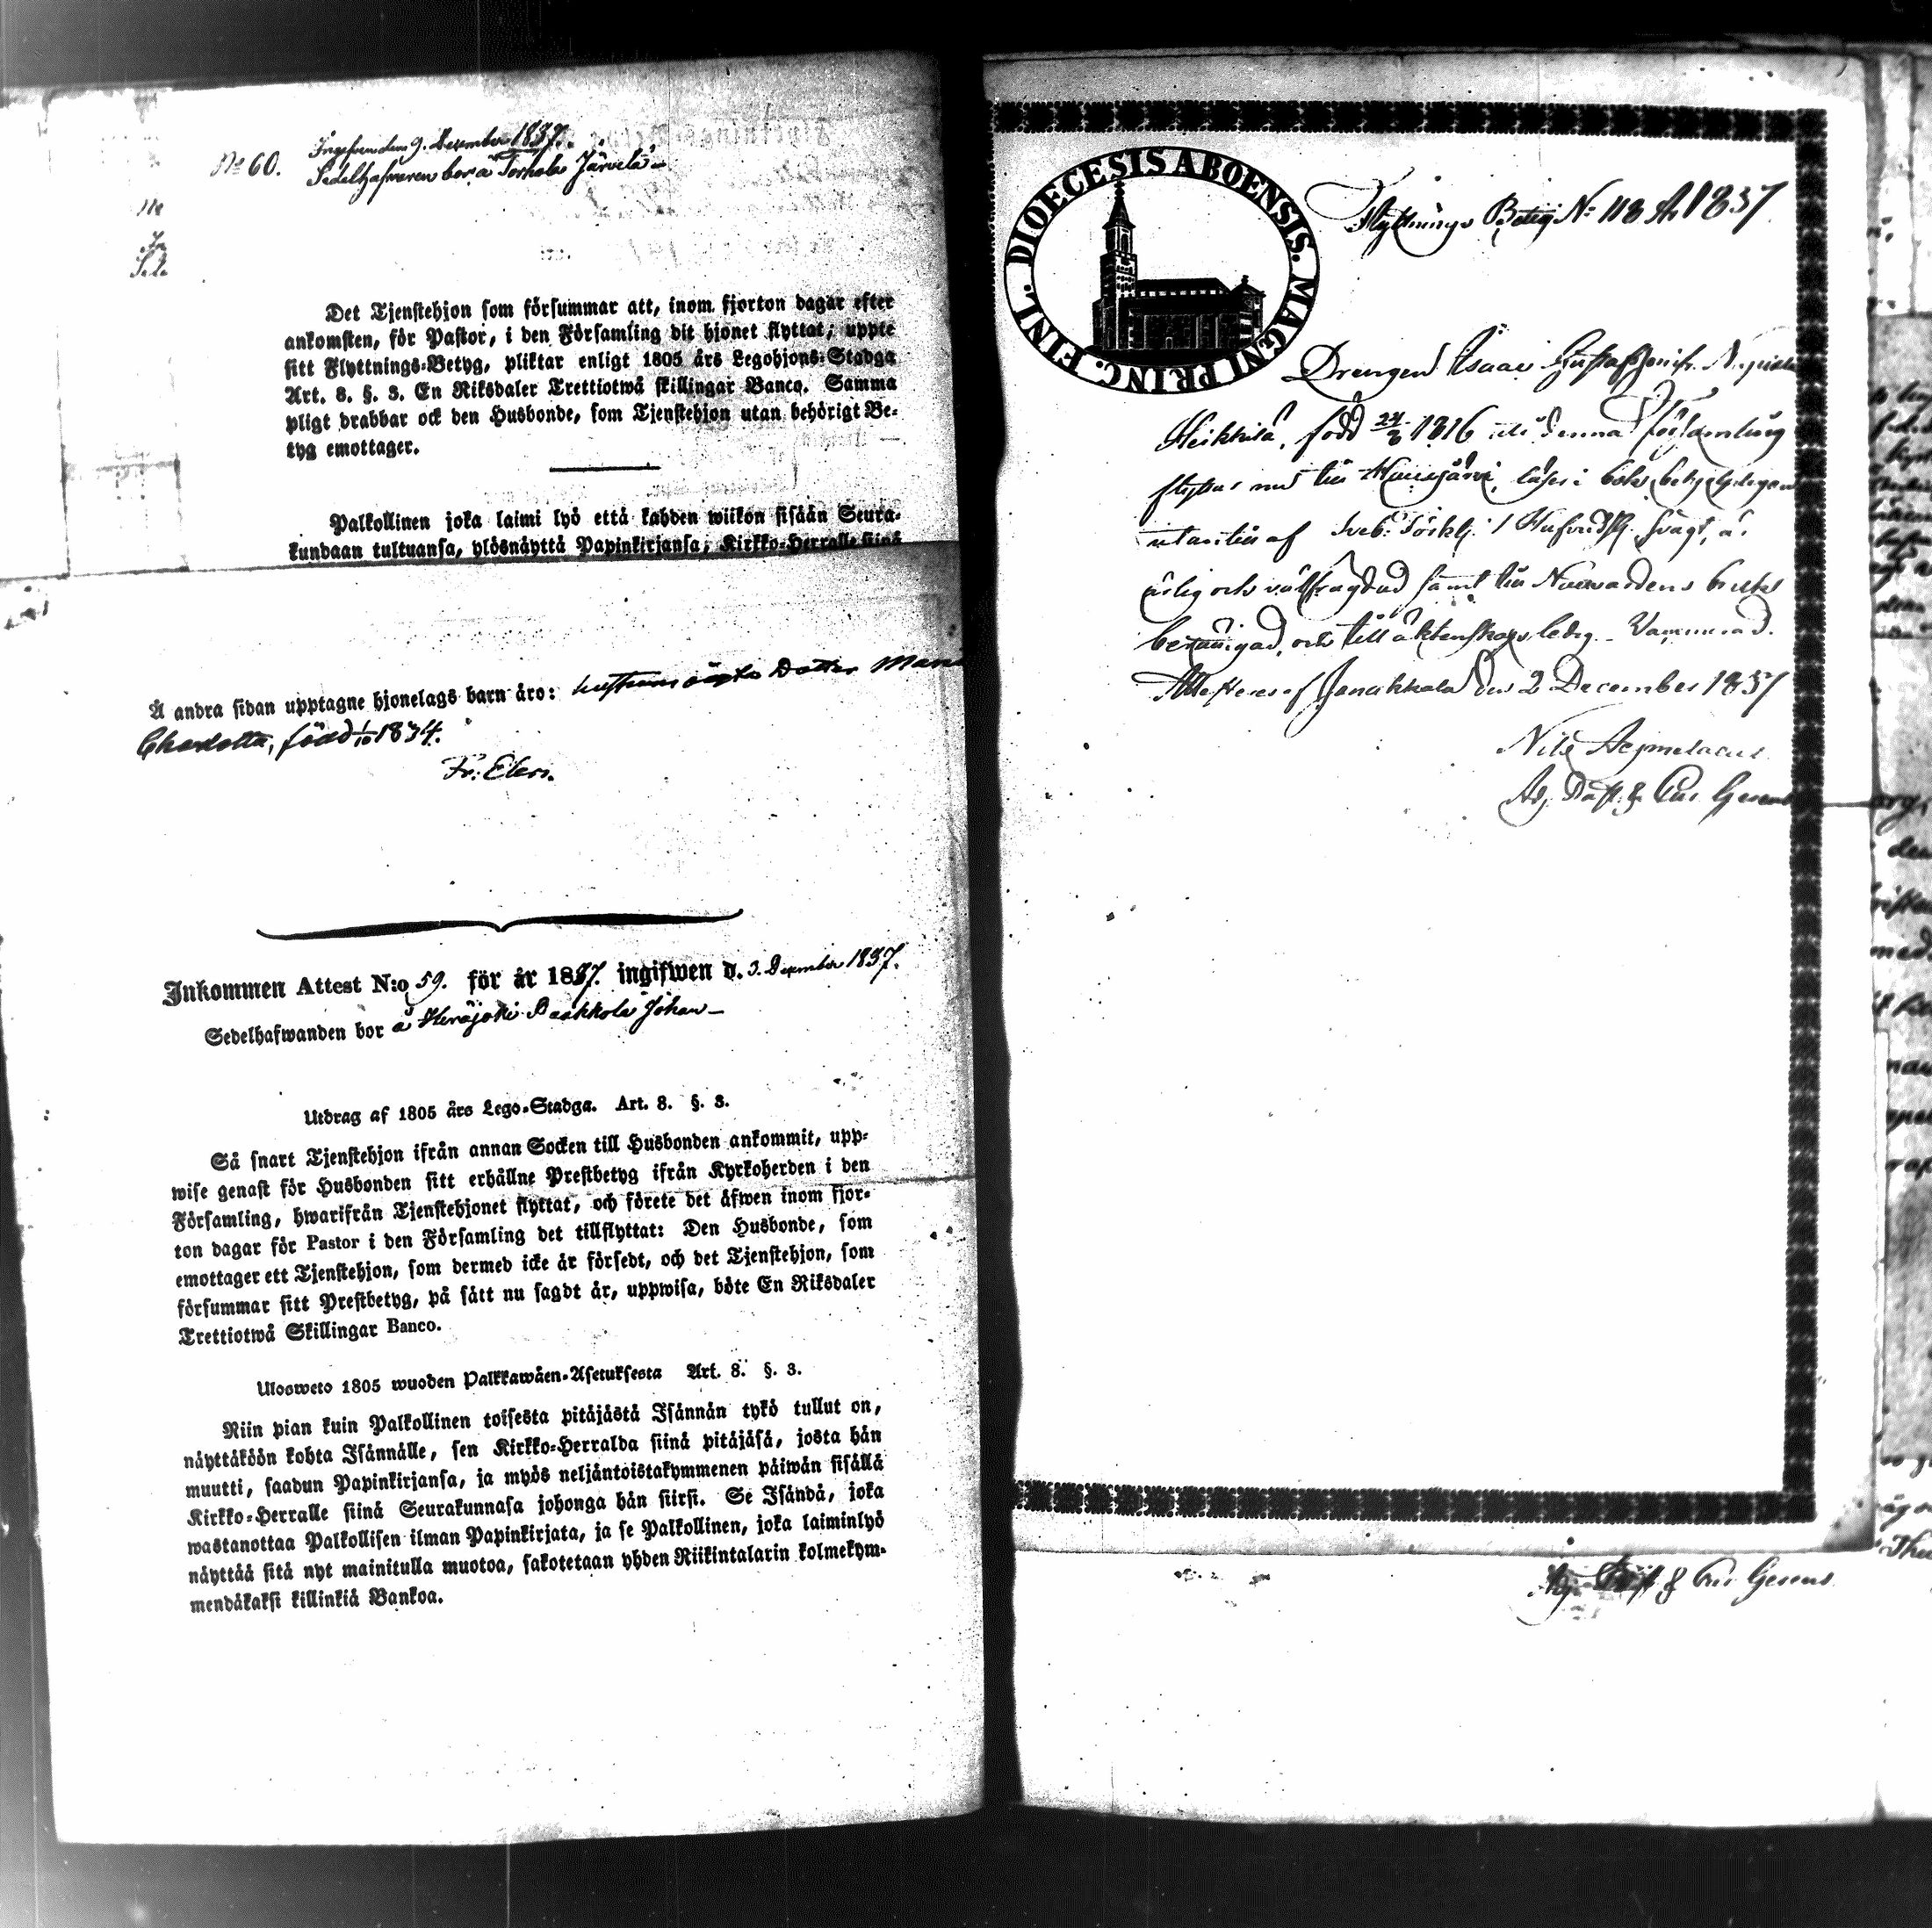 No 60. Ingifven den 9. December 1837.
Sedelhafvaren bor å Torhola Järvelä
Det Tjenstehjon som försummar att, inom fjorton dagar efter
ankomsten, för Pastor, i den Församling dit hjonet flyttat, uppte
sitt Flyttnings-Betyg, pliktar enligt 1805 års Legohjons-Stadga
Art. 8. §. 3. En Riksdaler Trettiotwå skillingar Banco. Samma
pligt drabbar ock den Husbonde, som Tjenstehjon utan behörigt Be-
tyg emottager.
Palkollinen joka laimi lyö että kahden wiikon sisään Seura-
kundaan tultuansa, ylösnäyttä Papinkirjansa, Kirkko-Herralle siinä
Å andra sidan upptagne hjonelags barn äro: hustruns Dotter Maria
Charlotta, född 1/10 1834.
Fr: Elers.
Inkommen Attest N:o 59. för år 1837. ingifwen d. 3. December 1837.
Sedelhafwanden bor å Herajoki Paakkola Johan
Utdrag af 1805 års Lego-Stadga. Art. 8. §. 3.
Så snart Tjenstehjon ifrån annan Socken till Husbonden ankommit, upp-
wise genast för Husbonden sitt erhållne Prestbetyg ifrån Kyrkoherden i den
Församling, hwarifrån Tjenstehjonet flyttat, och förete det äfwen inom fjor-
ton dagar för Pastor i den Församling det tillflyttat: Den Husbonde, som
emottager ett Tjenstehjon, som dermed icke är försedt, och det Tjenstehjon, som
försummar sitt Prestbetyg, på sätt nu sagdt är, uppwisa, böte En Riksdaler
Trettiotwå Skillingar Banco.
Ulosweto 1805 wuoden Palkkawäen-Asetuksesta Art. 8. §. 3.
Niin pian kuin Palkollinen toisesta pitäjästä Isännän tykö tullut on,
näyttäköön kohta Isännälle, sen Kirkko-Herralda siinä pitäjäsä, josta hän
muutti, saadun Papinkirjansa, ja myös neljäntoistakymmenen päiwän sisällä
Kirkko-Herralle siinä Seurakunnasa johonga hän siirsi. Se Isändä, joka
wastanottaa Palkollisen ilman Papinkirjata, ja se Palkollinen, joka laiminlyö
näyttää sitä nyt mainitulla muotoa, sakotetaan yhden Riikintalarin kolmekym-
mendäkaksi killinkiä Bankoa.
DIOECESIS ABOENSIS. MAGNI PRINC. FINL.
Flyttnings Betyg No 118 A 1837
Drengen Isaac Gustafsson ifr.
Heikkilä, född 24/8 1816 denna församling
flyttar nu till Hausjärvi, läser i bok
utantill af Sveb: Förklj. Hufvudst. svagt, är
ärlig och välfrägdad samt till Nattvardens bruk
berättigad, och till äktenskap ledig. Vaccinerad.
Attesteras af Janakkala den 2 December 1837
Nils Aejmelaeus
Adj. Past. &
Adj. Past. &